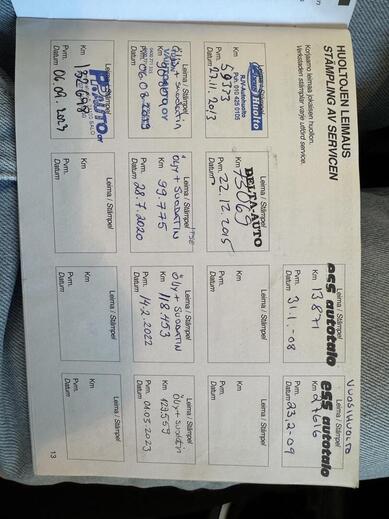 HUOLTOJEN LEIMAUS
STÄMPLING AV SERVICEN
Korjaamo leimaa jokaisen huollon.
Verkstaden stämplar varje utförd service.
Leima / Stämpel
ess autotalo
Km 13871
Pvm. 31.1.-08
Datum
VUOSIHUOLTO
Leima / Stämpel
ess autotalo
Km 27616
Pvm. 23.2-09
Datum
Huolto
RJV-Autohuolto
Km 59373
Pvm. 27.11.2013
Datum
Leima / Stämpel
DELTA-AUTO
Km
Pvm. 22.12.2015
Datum
Leima / Stämpel
Km
Pvm.
Datum
Leima / Stämpel
Km
Pvm.
Datum
Leima / Stämpel
Öljy + SUODATIN
Km
Pvm.
Datum
Leima / Stämpel
ÖLJY + SUODATIN
Km 99.775
Pvm. 28.7.2020
Datum
Leima / Stämpel
Öljy + SUODATIN
Km 118.453
Pvm. 14.2.2022
Datum
Leima / Stämpel
Öljy + Suodatin
Km 129.559
Pvm. 01.03.2023
Datum
Leima / Stämpel
Km 132698
Pvm.
Datum
Leima / Stämpel
Km
Pvm.
Datum
Leima / Stämpel
Km
Pvm.
Datum
Leima / Stämpel
Km
Pvm.
Datum
13